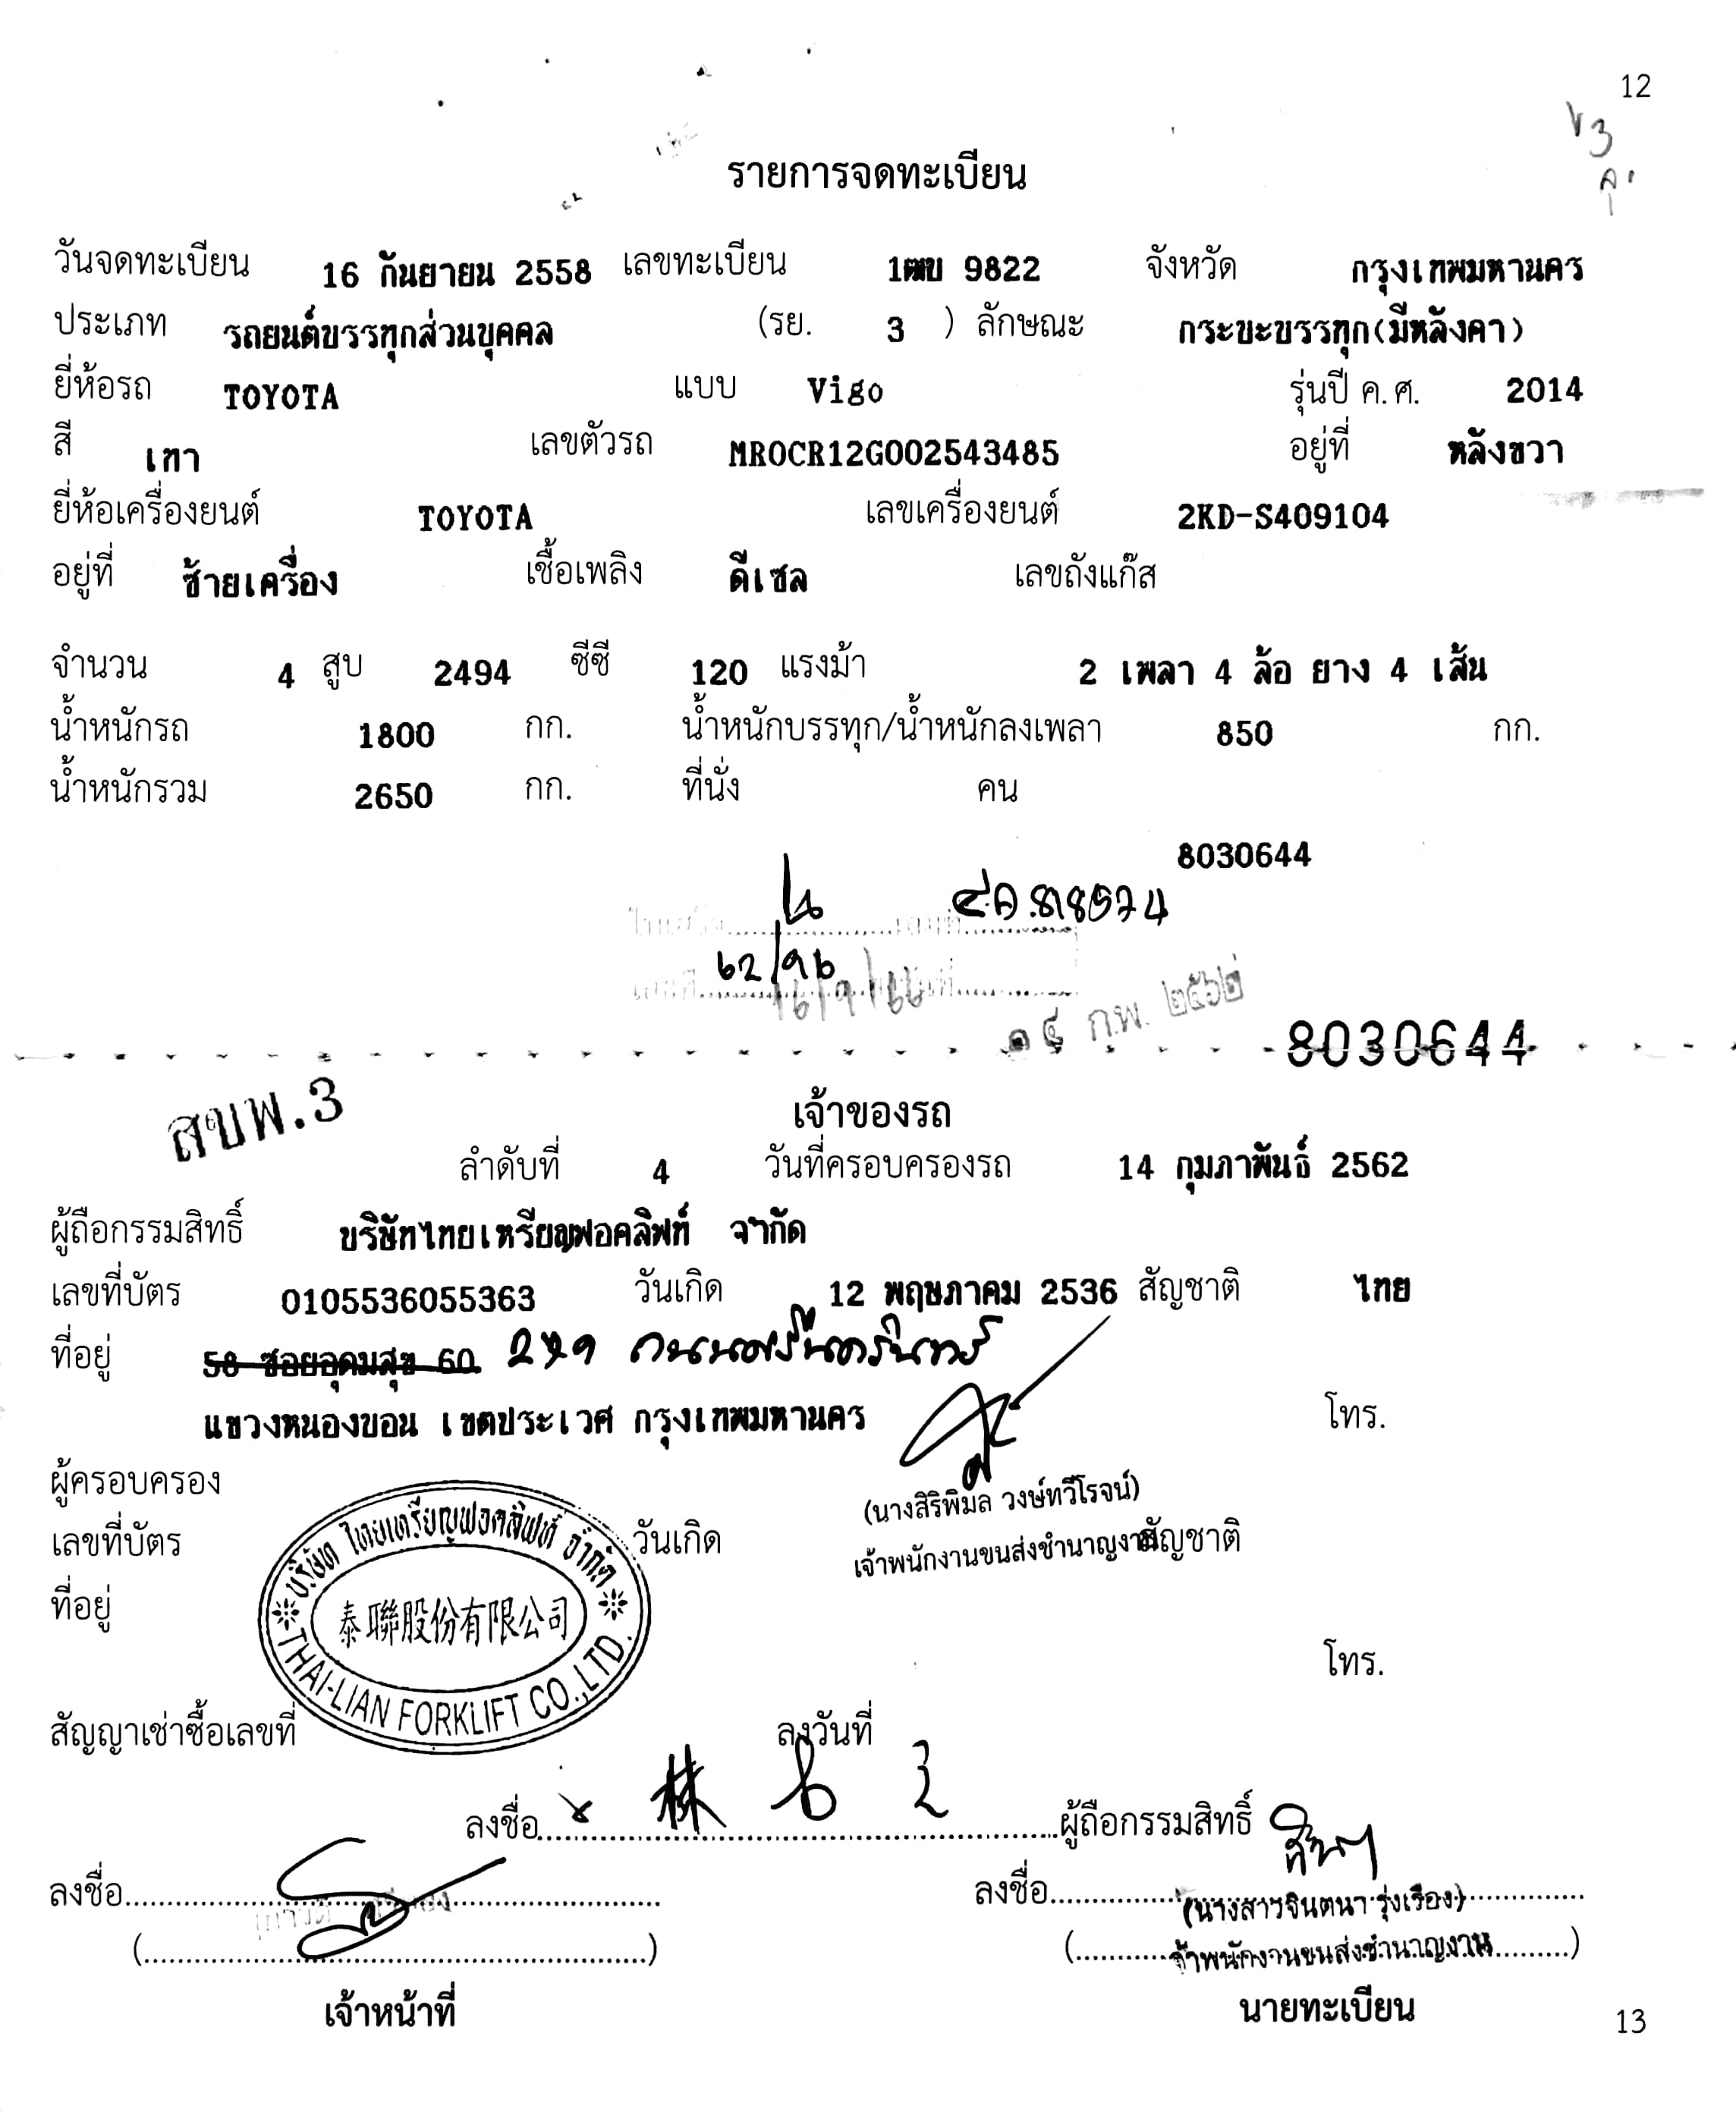 12
รายการจดทะเบียน
วันจดทะเบียน 16 กันยายน 2558 เลขทะเบียน 1ฒข 9822 จังหวัด กรุงเทพมหานคร
ประเภท รถยนต์บรรทุกส่วนบุคคล (รย. 3 ) ลักษณะ กระบะบรรทุก(มีหลังคา)
ยี่ห้อรถ TOYOTA แบบ Vigo รุ่นปี ค.ศ. 2014
สี เทา เลขตัวรถ MROCR12G002543485 อยู่ที่ หลังขวา
ยี่ห้อเครื่องยนต์ TOYOTA เลขเครื่องยนต์ 2KD-S409104
อยู่ที่ ซ้ายเครื่อง เชื้อเพลิง ดีเซล เลขถังแก๊ส
จำนวน 4 สูบ 2494 ซีซี 120 แรงม้า 2 เพลา 4 ล้อ ยาง 4 เส้น
น้ำหนักรถ 1800 กก. น้ำหนักบรรทุก/น้ำหนักลงเพลา 850 กก.
น้ำหนักรวม 2650 กก. ที่นั่ง คน
8030644
๑๔ ก.พ. ๒๕๖๒
8030644
สขพ.3
เจ้าของรถ
ลำดับที่ 4 วันที่ครอบครองรถ 14 กุมภาพันธ์ 2562
ผู้ถือกรรมสิทธิ์ บริษัทไทยเหรียญฟอคลิฟท์ จำกัด
เลขที่บัตร 0105536055363 วันเกิด 12 พฤษภาคม 2536 สัญชาติ ไทย
ที่อยู่ 58 ซอยอุดมสุข 60 ถนนศรีนครินทร์
แขวงหนองบอน เขตประเวศ กรุงเทพมหานคร โทร.
(นางสิริพิมล วงษ์ทวีโรจน์)
เจ้าพนักงานขนส่งชำนาญงาน
ผู้ครอบครอง
เลขที่บัตร วันเกิด สัญชาติ
ที่อยู่
โทร.
บริษัท ไทยเหรียญฟอคลิฟท์ จำกัด
泰聯股份有限公司
THAI-LIAN FORKLIFT CO.,LTD.
สัญญาเช่าซื้อเลขที่ ลงวันที่
ลงชื่อ ผู้ถือกรรมสิทธิ์
ลงชื่อ ลงชื่อ
(นางสาวจินตนา รุ่งเรือง)
เจ้าพนักงานขนส่งชำนาญงาน
เจ้าหน้าที่ นายทะเบียน
13